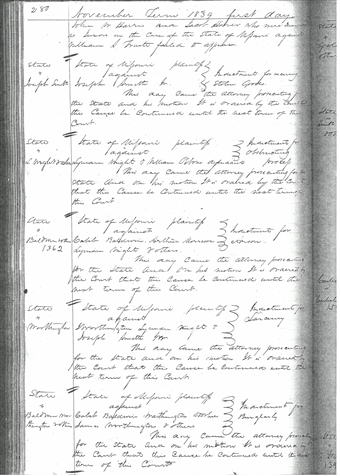 280
November Term 1839 first day
John W Burris and Jacob Stolvir who was
as Jurors in the Case of the State of Missouri against
William S Pruitt failed to appear
State of Missouri plaintiff
against
Joseph Smith Jr.
Indictment for receiving
Stolen Goods
This day Came the attorney prosecuting
the State and his motion It is ordered by the Court
this Cause be Continued until the next term of the
Court
State
"
Joseph Smith
State of Missouri plaintiff
against
Lyman Wight & William
Indictment for
obstructing
process
This day Came the attorney prosecuting for the
State And on his motion It is ordered by the
that this Cause be Continued until the next term
the Court
State
"
State of Missouri plaintiff
against
Caleb Baldwin
Lyman Wight & others
Indictment for
arson
This day Came the attorney prosecuting
for the State and on his motion It is ordered by
the Court that this Cause be continued until the
next term of this Court
State
"
1362
State of Missouri plaintiff
against
Worthington Lyman Wight &
Joseph Smith Jr.
Indictment for
Larceny
This day Came the attorney prosecuting
for the State and on his motion It is ordered
the Court that this Cause be Continued until the
next term of this Court
State
"
Worthington
State of Missouri plaintiff
against
Caleb Baldwin
James Worthington & others
Indictment for
Burglary
This day Came the attorney prosecuting
for the State and on his motion It is ordered by the
this Cause be Continued until the next
term of this Court
State
"